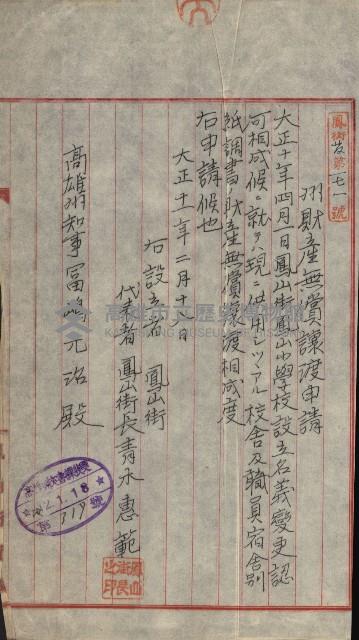 鳳街發第七一號
州財産無償讓渡申請
大正十年四月一日鳳山街鳳山小學校設立名義變更認
可相成候ニ就テハ現ニ供用シツヽアル校舍及職員宿舍別
紙調書ノ財産無償讓渡相成度
右申請候也
大正十一年二月十六日
右設立者 鳳山街
代表者 鳳山街長 青木惠範
鳳山街長之印
高雄州知事富嶋元治殿
2.1.18
第 號
高雄市立歷史博物館
KAOHSIUNG MUSEUM OF HISTORY